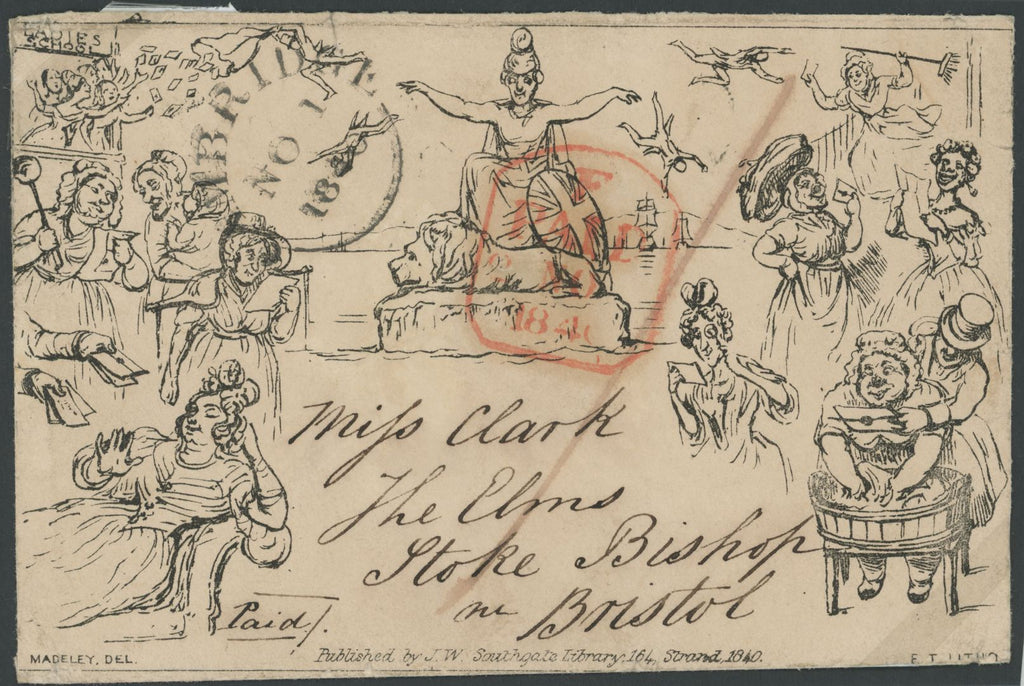 LADIES
SCHOOL
NO 1
184
PAID
NO
1840
Miss Clark
The Elms
Stoke Bishop
nr Bristol
Paid/.
MADELEY, DEL.
Published by J.W. Southgate Library, 164, Strand, 1840.
F. T. LITHO